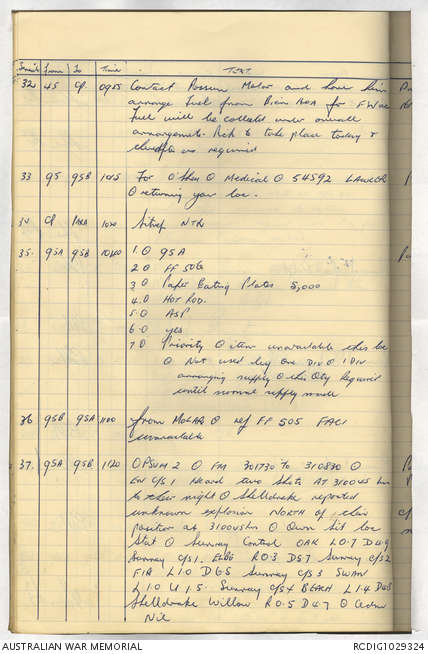 Serial From To Time TEXT
32 45 CP 0955 Contact Possum Molar and have him
arrange fuel from Bien Hoa for FWAC
Fuel will be collected under overall
arrangements. to take place today &
as required
33 95 95B 1015 For O Medical O 54592 LAWLER
O returning your loc.
34 CP 1020 Sitrep NTR
35. 95A 95B 1040 1.0 95A
2.0 FF 505
3.0 Paper Eating Plates 5,000
4.0 HOT ROD.
5.0 ASP
6.0 yes
7.0 Priority O item unavailable this loc
O Not used by One Div O 1 Div
arranging supply O this Qty Required
until normal supply made
36 95B 95A 1100 from MOLAR O ref FF 505 FACI
unavailable
37. 95A 95B 1120 OPSUM 2 O FM 301730 to 310830 O
C/S 1 Heard two shots AT 310045 hrs
night O Shelldrake reported
unknown explosion NORTH of their
position at 310045hrs O Own Sit loc
Stat O Survey Control OAK L 0.7 D 4.9
Survey C/S1. R 0.3 D 5.7 Survey C/S2
FIR L 1.0 D 6.5 Survey C/S 3 SWAN
L 1.0 U 1.5. Survey C/S 4 BEACH L 1.4 D 4.5
Shelldrake Willow R 0.5 D 4.7 O
Nil
AUSTRALIAN WAR MEMORIAL RCDIG1029324